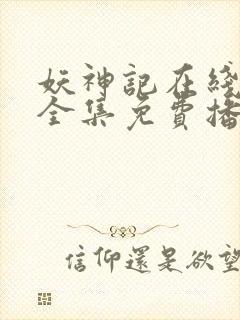 妖神記在綫
全集免費播
信仰還是欲望